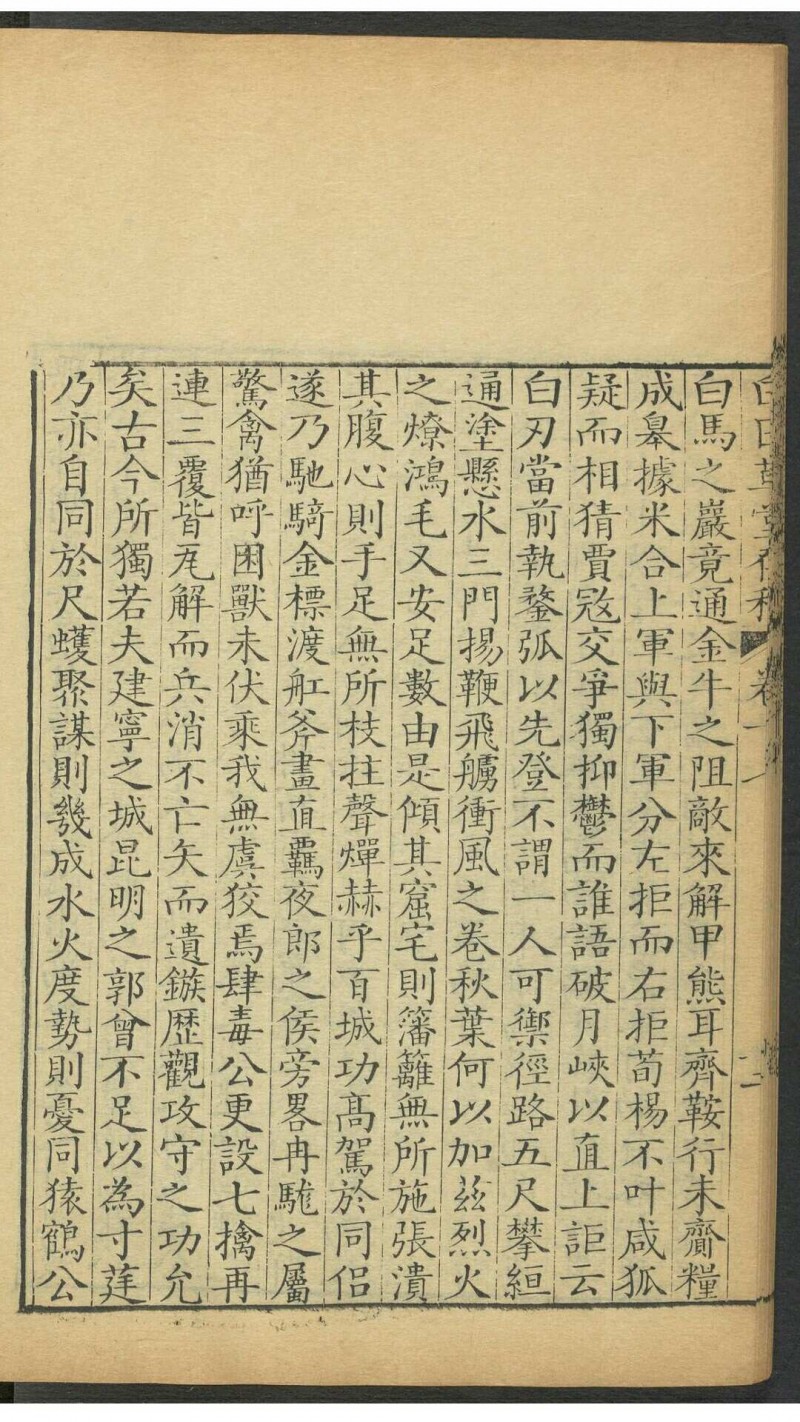 白田草堂存稿 卷一 二
白馬之巖竟通金牛之阻敵來解甲熊耳齊鞍行未齎糧
成皋據米合上軍與下軍分左拒而右拒荀楊不叶咸狐
疑而相猜賈㓂交爭獨抑鬱而誰語破月峽以直上詎云
白刃當前執鍪弧以先登不謂一人可禦徑路五尺攀絙
通塗懸水三門揚鞭飛艣衝風之卷秋葉何以加兹烈火
之燎鴻毛又安足數由是傾其窟宅則籓籬無所施張潰
其腹心則手足無所枝拄聲燀赫乎百城功髙駕於同侣
遂乃馳騎金標渡舡斧畫直覊夜郎之侯旁畧冉駹之屬
驚禽猶呼困獸未伏乘我無虞狡焉肆毒公更設七擒再
連三覆皆𤬦解而兵消不亡矢而遺鏃歴觀攻守之功允
矣古今所獨若夫建寧之城昆明之郭曾不足以為寸莛
乃亦自同於尺蠖聚謀則幾成水火度勢則憂同猿鶴公